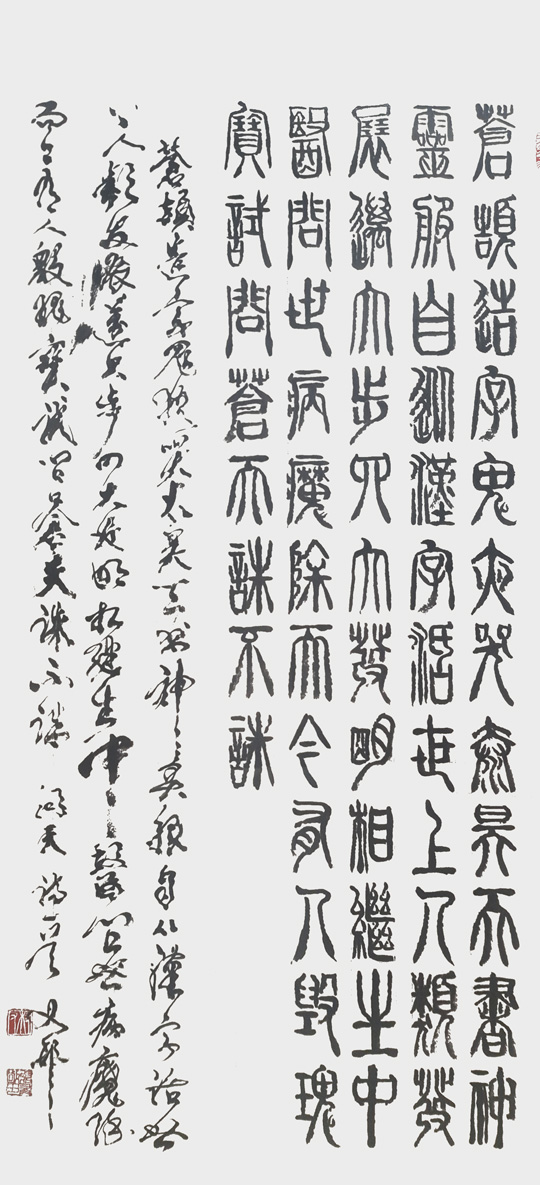 蒼頡造字鬼夜哭昊天書神
靈服自從漢字活世上人類發
展邁大步四大發明相繼生中
醫問世病魔除而今有人毀瑰
寶試問蒼天誅不誅
蒼頡造字鬼夜哭太昊天書神靈服自從漢字活世
上人類發展邁大步四大發明相繼生中醫問世病魔除
而今有人毀瑰寶試問蒼天誅不誅